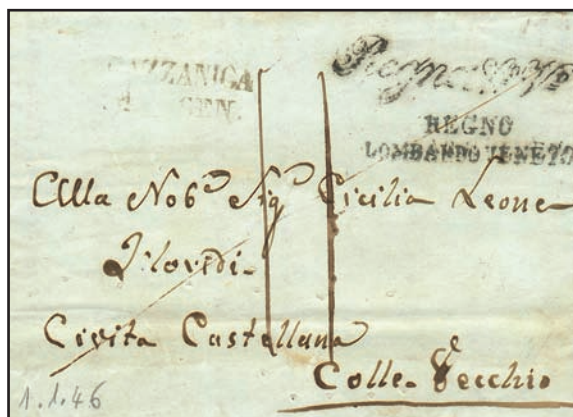 GAZZANIGA
GEN.
REGNO
LOMBARDO VENETO
Alla Nob.e Sig.a Cicilia Leone
Civita Castellana
Colle Vecchio
1.1.46